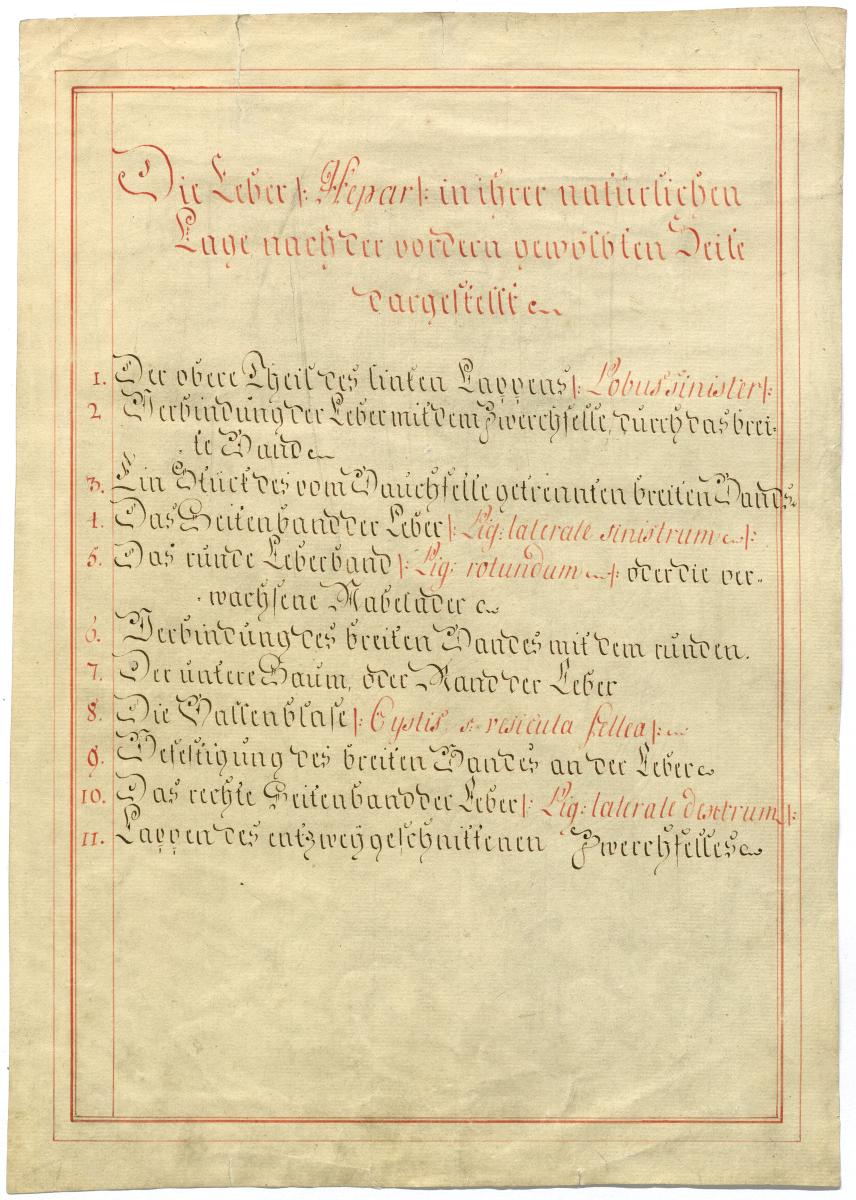 Die Leber /: Hepar :/ in ihrer natürlichen
Lage nach der vordern gewölbten Seite
dargestellt
1. Der obere Theil des linken Lappens /: Lobus sinister :/
2 Verbindung der Leber mit dem Zwerchfelle, durch das brei-
te Band
3. Ein Stück des vom Bauchfelle getrennten breiten Bands
4. Das Seitenband der Leber /: Lig: laterale sinistrum :/
5. Das runde Leberband /: Lig: rotundum :/ oder die ver-
wachsene Nabelader
6. Verbindung des breiten Bandes mit dem runden.
7. Der untere Saum, oder Rand der Leber
8. Die Gallenblase /: Cystis s: vesicula fellea :/
9. Befestigung des breiten Bandes an der Leber
10. Das rechte Seitenband der Leber /: Lig: laterale dextrum :/
11. Lappen des entzwey geschnittenen Zwerchfelles